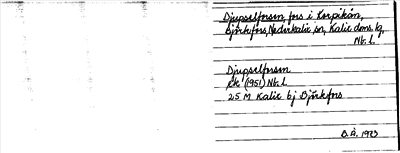 Djupselforsen, fors i Korpikån,
Björkfors, Nederkalix sn, Kalix doms. tg,
Nb. L.
Djupselforsen
Ek (1951) Nb. L
25 M Kalix bj Björkfors
B.Å. 1973